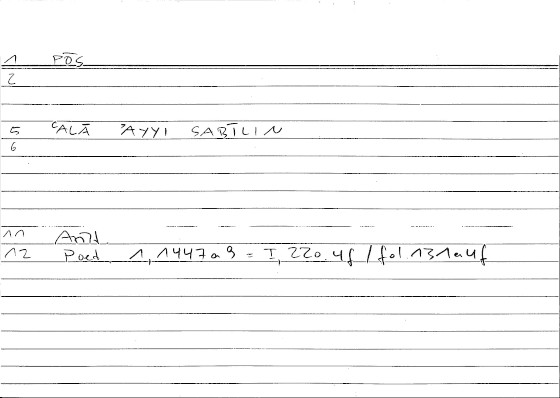 1 PŌS
2
5 ʿALĀ ʾAYYI SABĪLIN
6
11 Arist.
12 Poet. 1, 1447a9 = I, 220.4f / fol.131a4f